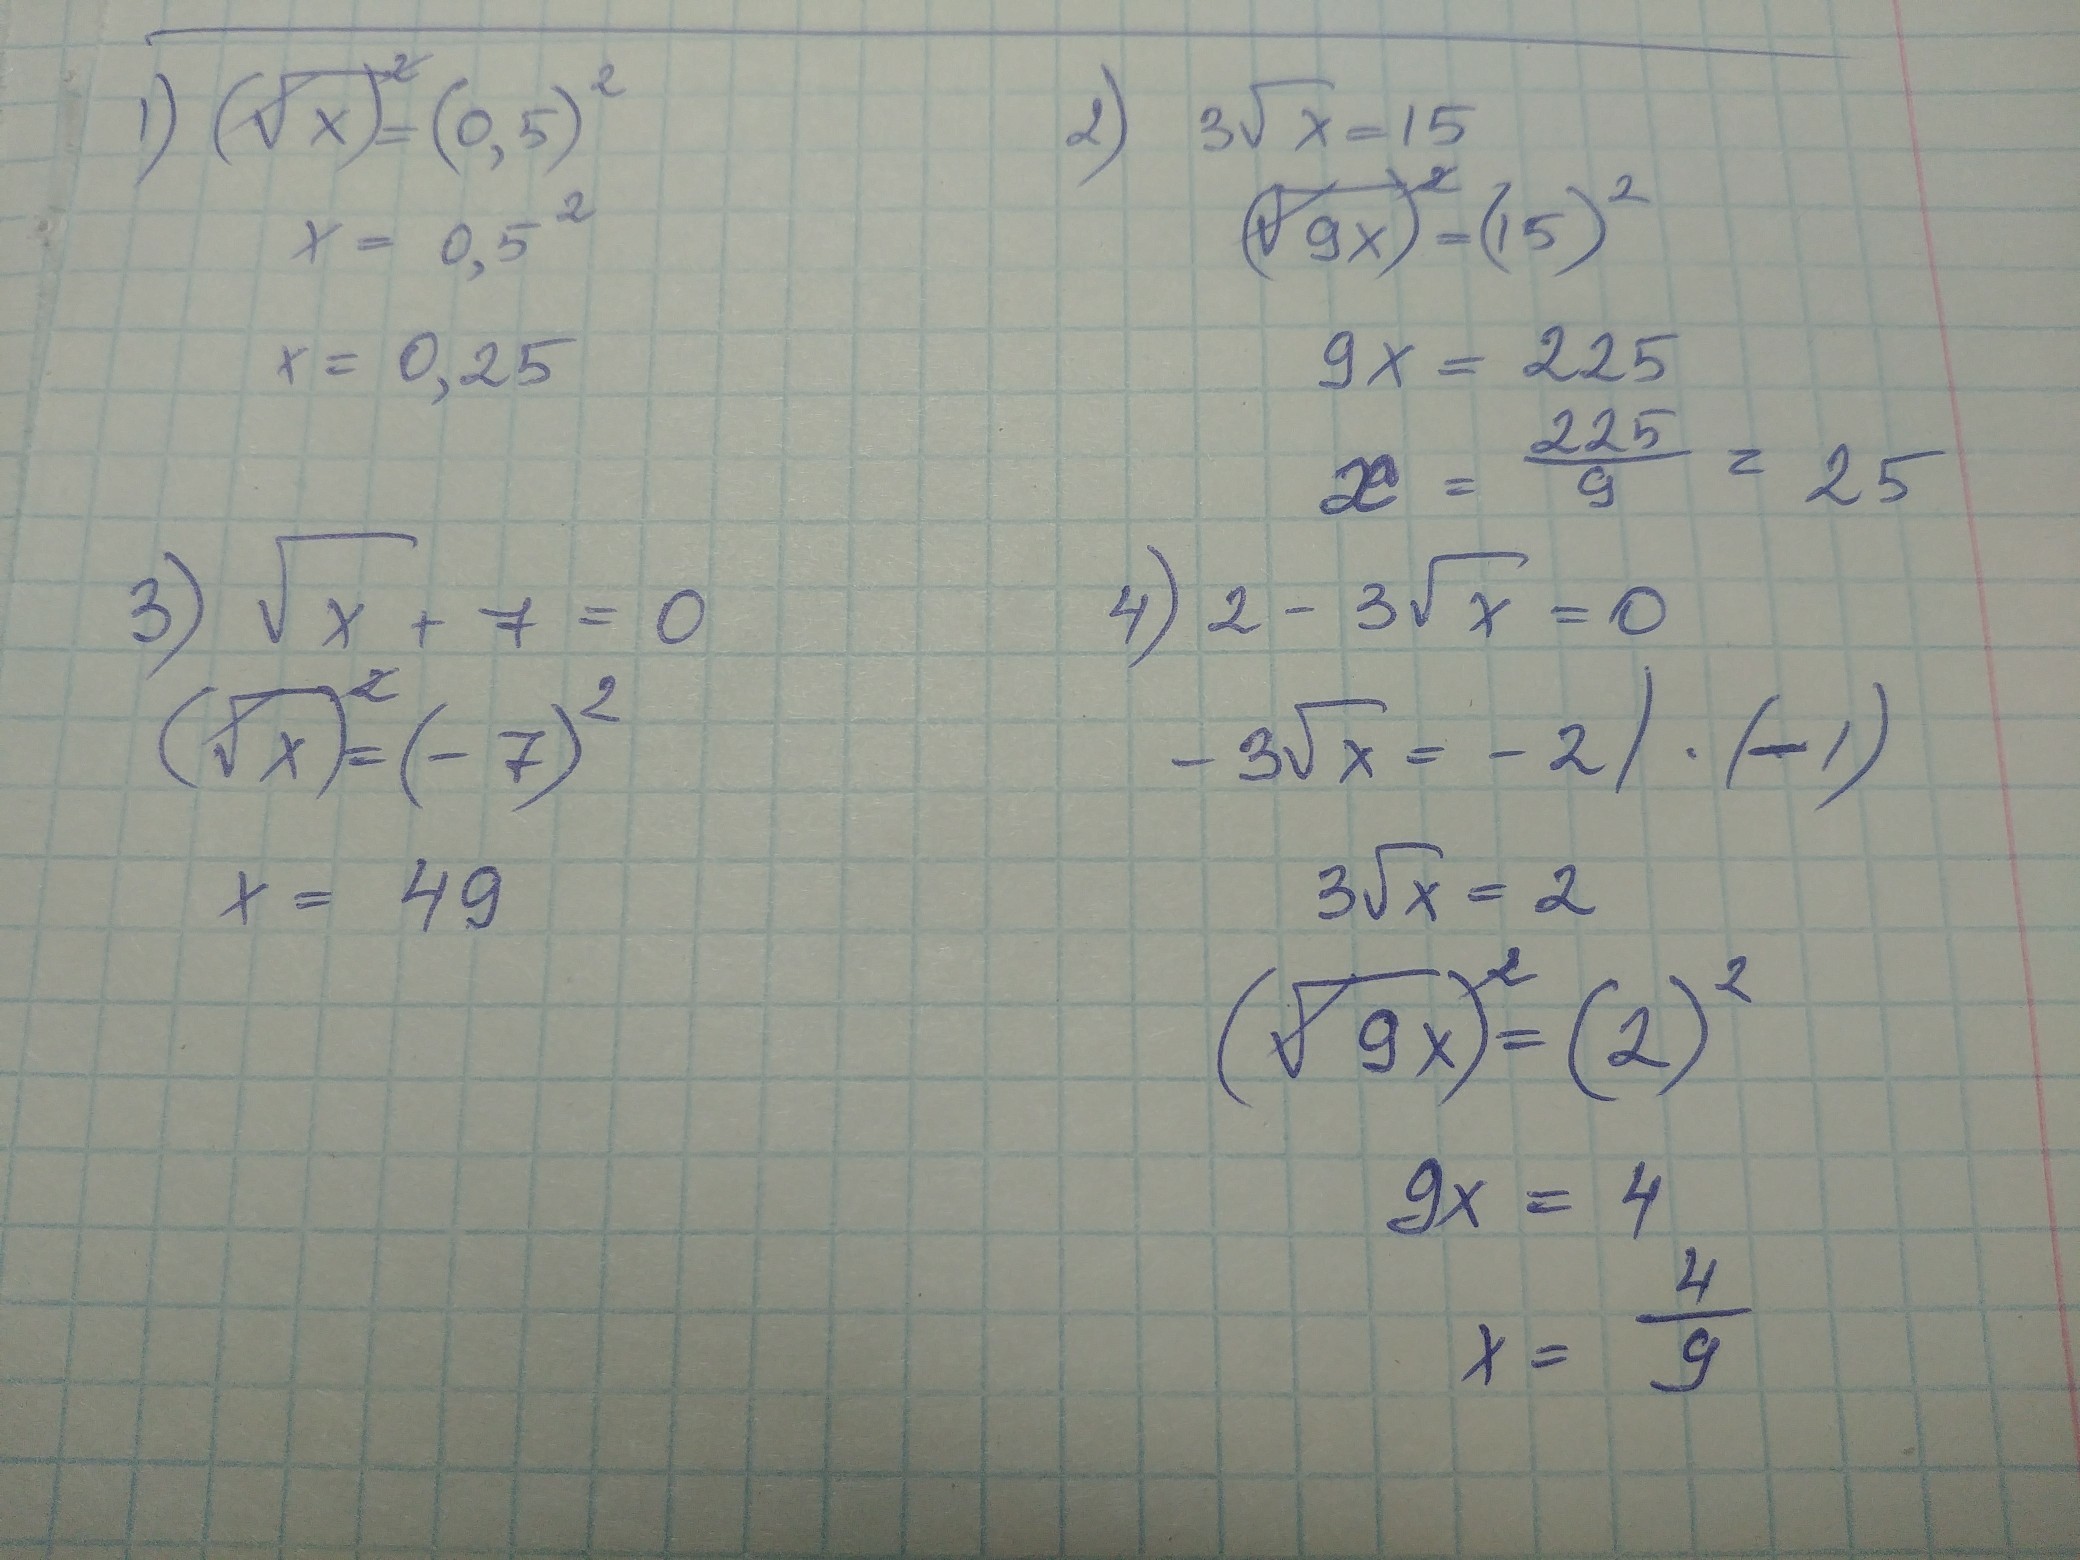 1) (√x)² = (0,5)²
x = 0,5²
x = 0,25
2) 3√x = 15
(√9x)² = (15)²
9x = 225
x = 225/9 = 25
3) √x + 7 = 0
(√x)² = (-7)²
x = 49
4) 2 - 3√x = 0
-3√x = -2 / · (-1)
3√x = 2
(√9x)² = (2)²
9x = 4
x = 4/9